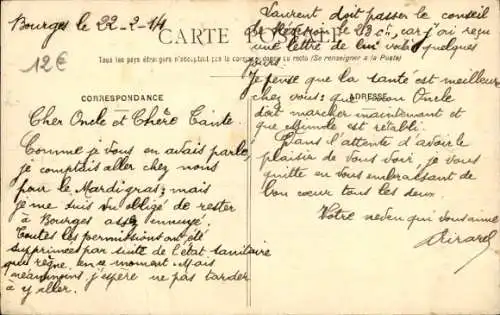 Bourges le 22-2-14
12€
CARTE POSTALE
Tous les pays étrangers n'acceptent pas la correspondance au recto (Se renseigner à la Poste)
CORRESPONDANCE
Cher Oncle et Chère Tante.
Comme je vous en avais parlé,
je comptais aller chez nous
pour le Mardigras; mais
je me suis vu obligé de rester
à Bourges assez ennuyé.
Toutes les permissions ont été
supprimées par suite de l'état sanitaire
qui règne en ce moment. Mais
néanmoins j'espère ne pas tarder
à y aller.
Laurent doit passer le conseil
de le car j'ai reçu
une lettre de lui voilà quelques
jours.
Je pense que la santé est meilleure
chez vous; que mon Oncle
ADRESSE
doit marcher maintenant et
que est rétabli.
Dans l'attente d'avoir le
plaisir de vous voir, je vous
quitte en vous embrassant de
bon cœur tous les deux.
Votre neveu qui vous aime